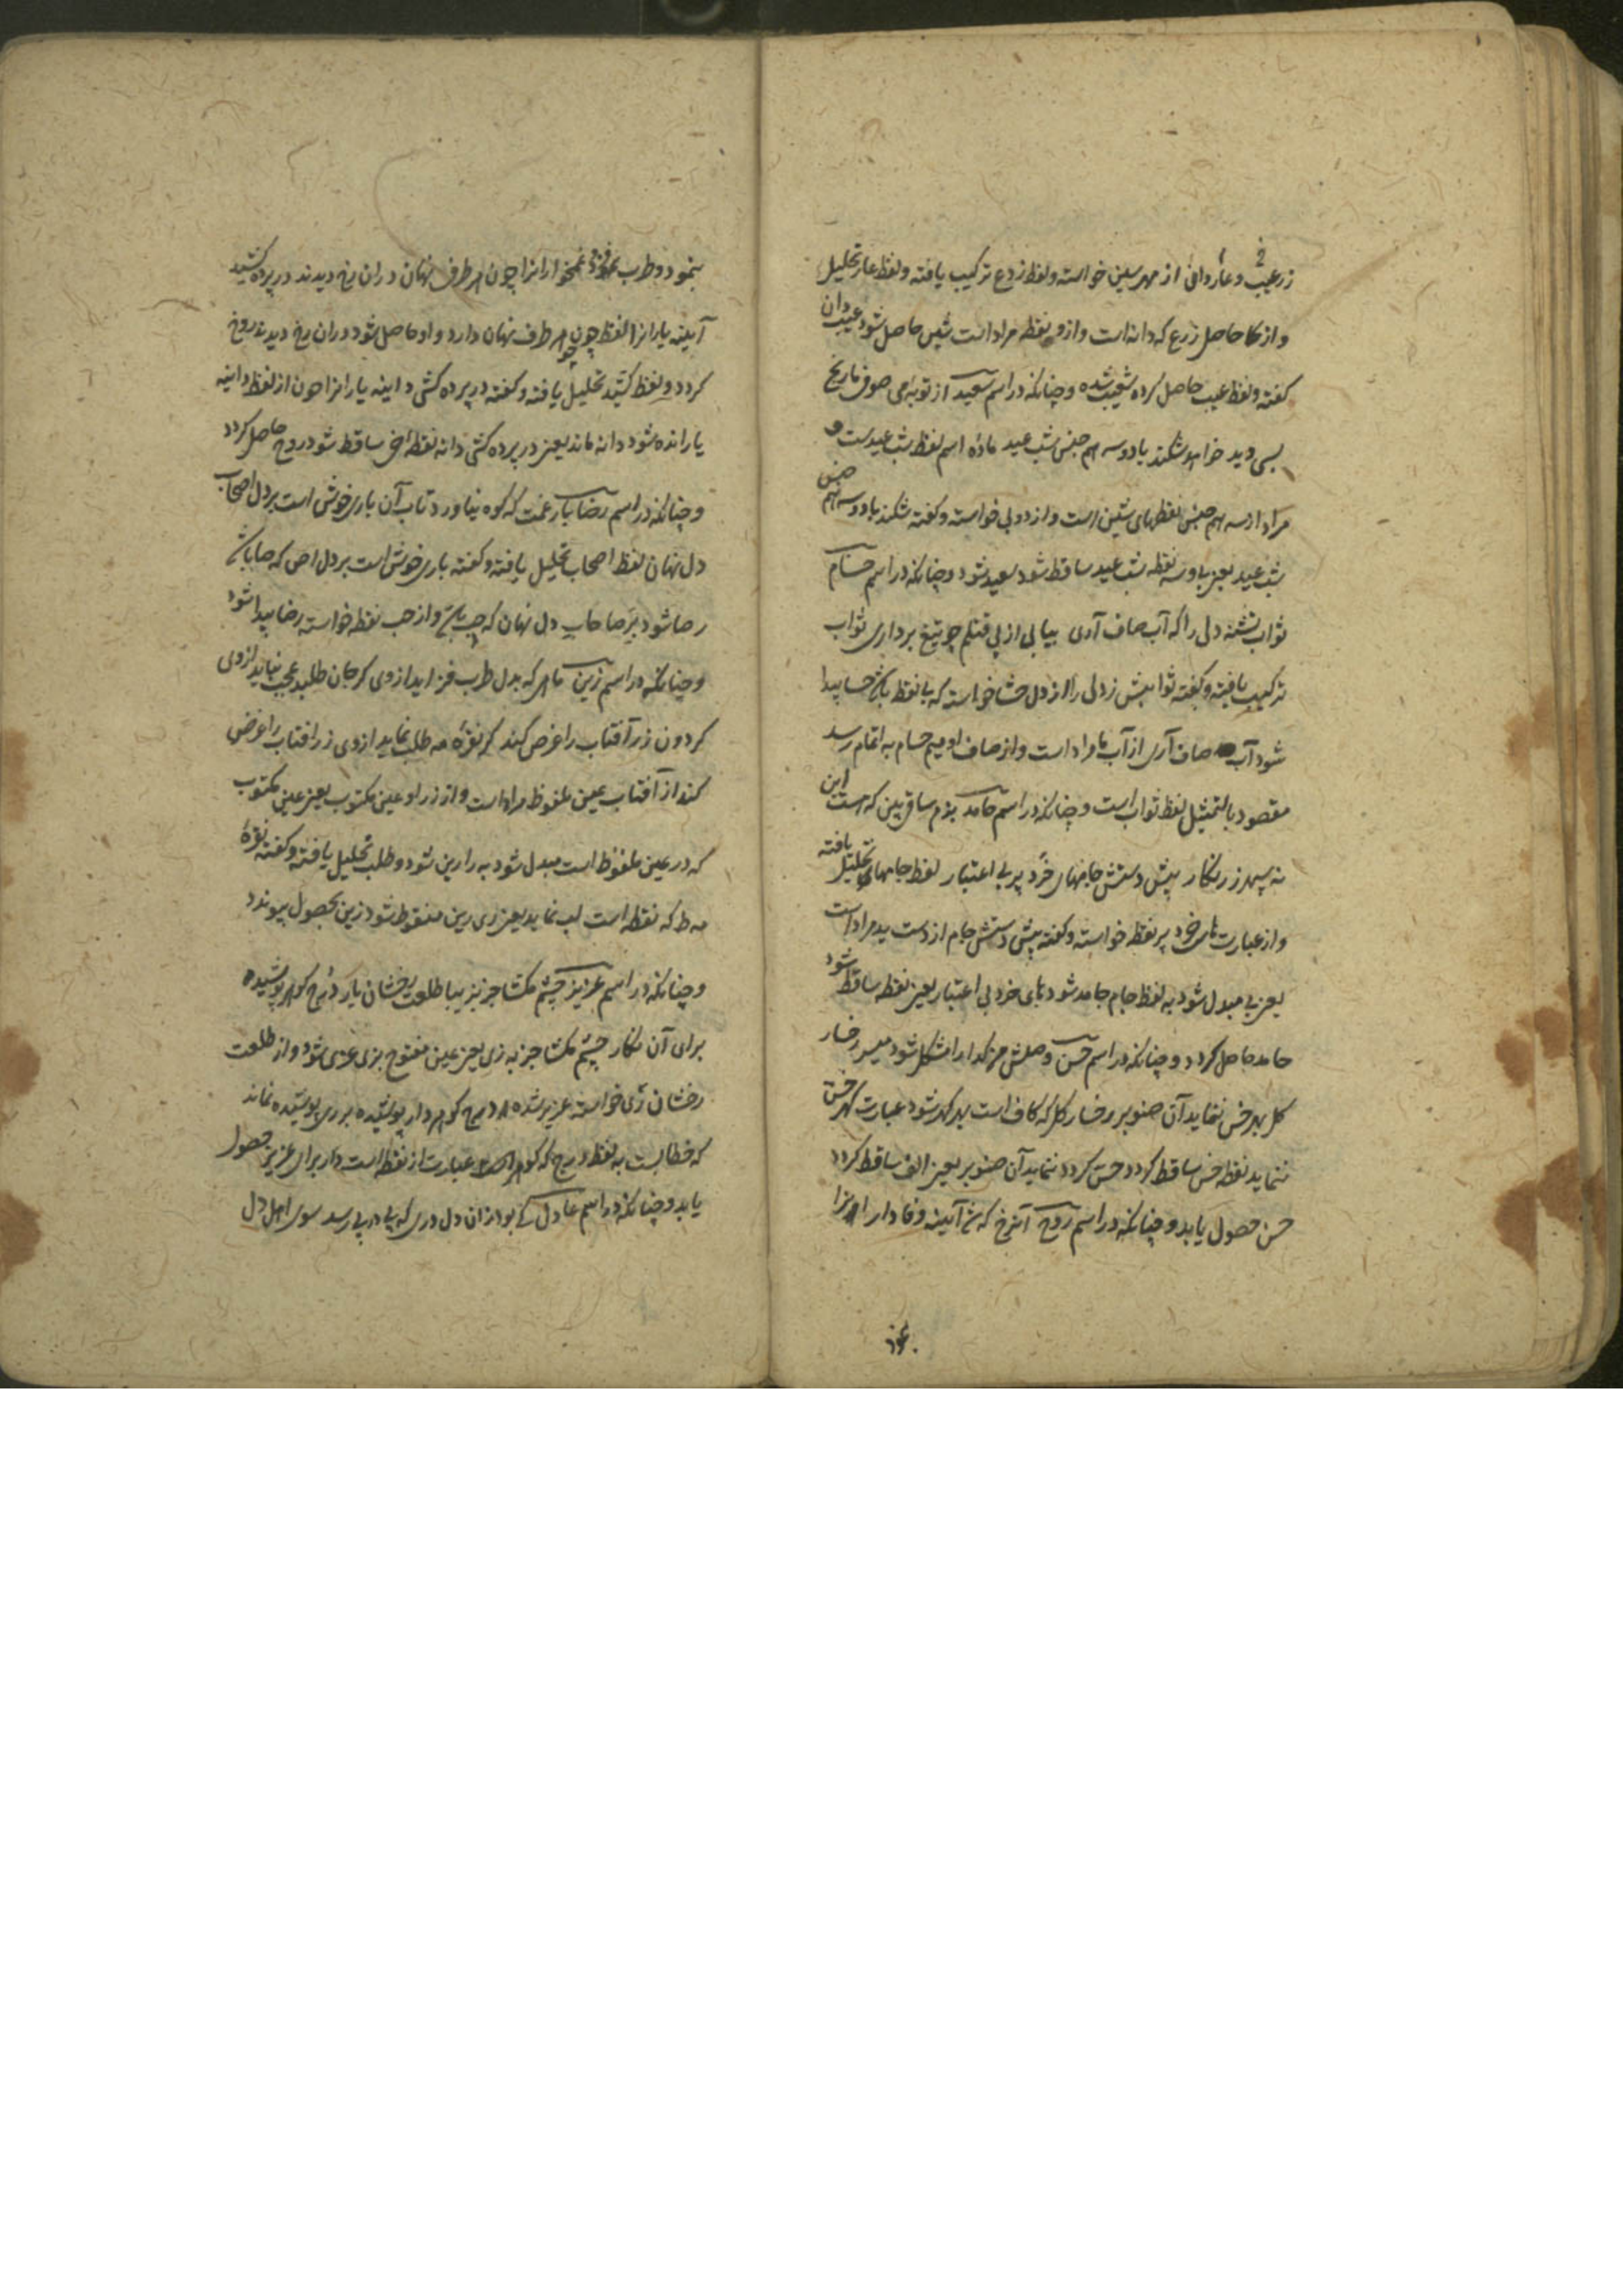 زرعیب و عار دانی از مهر سین خواسته و لفظ زرع ترکیب یافته و لفظ عار تحلیل
و از کا حاصل زرع که دانه است و ازو نقطه مراد است شین حاصل شود عیب دان
گفته و لفظ عیب حاصل کرده شعیب شده و چنانکه در اسم سعید از توبه می صوفی تاریخ
بسی دید خواهد شکند با دو سه هم جنس شب عید مادهٔ اسم لفظ شب عیدست و
مراد از سه هم جنس نقطهای شین است و از دو بی خواسته و گفته شکند با دو سه هم جنس
شب عید یعنی بی و سه نقطه شب عید ساقط شود سعید شود و چنانکه در اسم حسام
ثواب تشنه دلی را که آب صاف آری بیا بی از پی قتلم چو تیغ برداری ثواب
ترکیب یافته و گفته ثوابش زدلی را از دل حشا خواسته که با نقطه باشد حسا پیدا
شود آب صاف آری از آب ما مراد است و از صاف او میم حسام به اتمام رسد
مقصود بالتمثیل لفظ ثواب است و چنانکه در اسم حامد بزم ساقی بین که هست این
نه سپهر زرنگار پیش دستش جامهای خرد پر بی اعتبار لفظ جامهای تحلیل یافته
و از عبارت های خرد پر نقطه خواسته و گفته پیش دستش جام از دست ید مراد است
یعنی بی مبدل شود به لفظ جام جامد شود های خرد بی اعتبار یعنی نقطه ساقط شود
حامد حاصل گردد و چنانکه در اسم حسن وصلش هر گدا را مشکل شود میسر رخسار
گل بهر خس ننماید آن صنوبر رخسار گل که کاف است بهر کهر شود عبارت کهر خس
ننماید نقطه خس ساقط گردد حسن گردد ننماید آن صنوبر یعنی الف ساقط گردد
حسن حصول یابد و چنانکه در اسم روح آنرخ که شد آیینه وفادار انرا
بنمود و طرب فزود غمخوارانرا چون هر طرف نهان دران رخ دیدند در پرده کشید
آیینه یارانرا لفظ چون هر طرف نهان دارد و او حاصل شود دران رخ دیدند روخ
گردد و لفظ کشید تحلیل یافته و گفته در پرده کشی د اینه یارانرا چون از لفظ داینه
یا رانده شود دانه ماند یعنی در پرده کشی دانه نقطه خی ساقط شود روح حاصل گردد
و چنانکه در اسم رضا بار غمت که کوه نیاورد تاب آن باری خوش است بر دل اصحاب
دل نهان لفظ اصحاب تحلیل یافته و گفته باری خوش است بر دل اص که صا باشد
رصا شود بر صا حاب دل نهان که حب باشد و از حب نقطه خواسته رضا پیدا شود
و چنانکه در اسم زین ماهی که بدل طرب فزاید از وی گر جان طلبد عجب نیاید از وی
گردون زر آفتاب را عرض کند گر نقره مه طلب نماید از وی زر افتاب را عرض
کند از آفتاب عین ملفوظ مراد است و از زر او عین مکتوب یعنی عین مکتوب
که در عین ملفوظ است مبدل شود به را رین شود و طلب تحلیل یافته و گفته نقرهٔ
مه ط که نقطه است لب نماید یعنی ری رین منقوط شود زین بحصول پیوندد
و چنانکه در اسم عزیز چشم مگشا جز بزیبا طلعت رخشان یار درج گوهر پوشیده
برای آن نگار چشم مگشا جز به زی یعنی عین مفتوح بزی عزی شود و از طلعت
رخشان زی خواسته عزیز شده درج گوهر دار پوشیده برری پوشیده نماند
که خطابست به لفظ درج که گوهر عبارت از نقطه است دار برای عزیز حصول
یابد و چنانکه در اسم عادل کی بود زان دل دری که پی در پی رسد سوی اهل دل